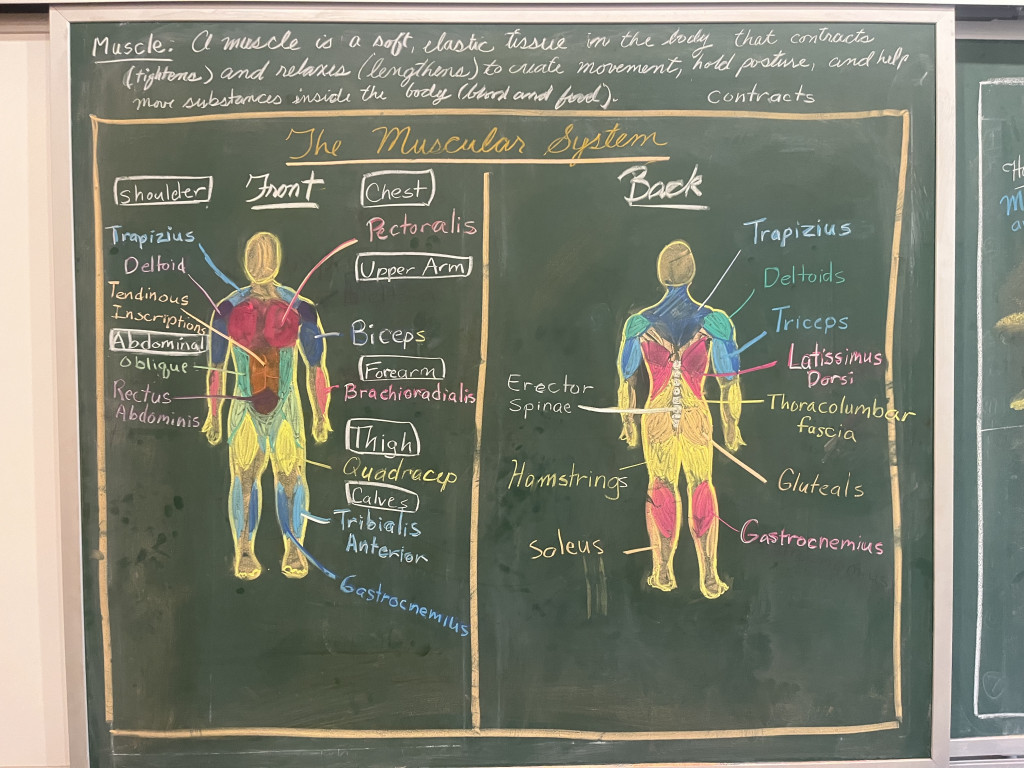 Muscle. A muscle is a soft, elastic tissue in the body that contracts
(tightens) and relaxes (lengthens) to create movement, hold posture, and help
move substances inside the body (blood and food).
Contracts
The Muscular System
Front
Shoulder
Trapizius
Deltoid
Tendinous
Inscriptions
Abdominal
Oblique
Rectus
Abdominis
Chest
Pectoralis
Upper Arm
Biceps
Forearm
Brachioradialis
Thigh
Quadracep
Calves
Tribialis
Anterior
Gastrocnemius
Back
Trapizius
Deltoids
Triceps
Latissimus
Dorsi
Erector
Spinae
Thoracolumbar
fascia
Hamstrings
Gluteals
Soleus
Gastrocnemius